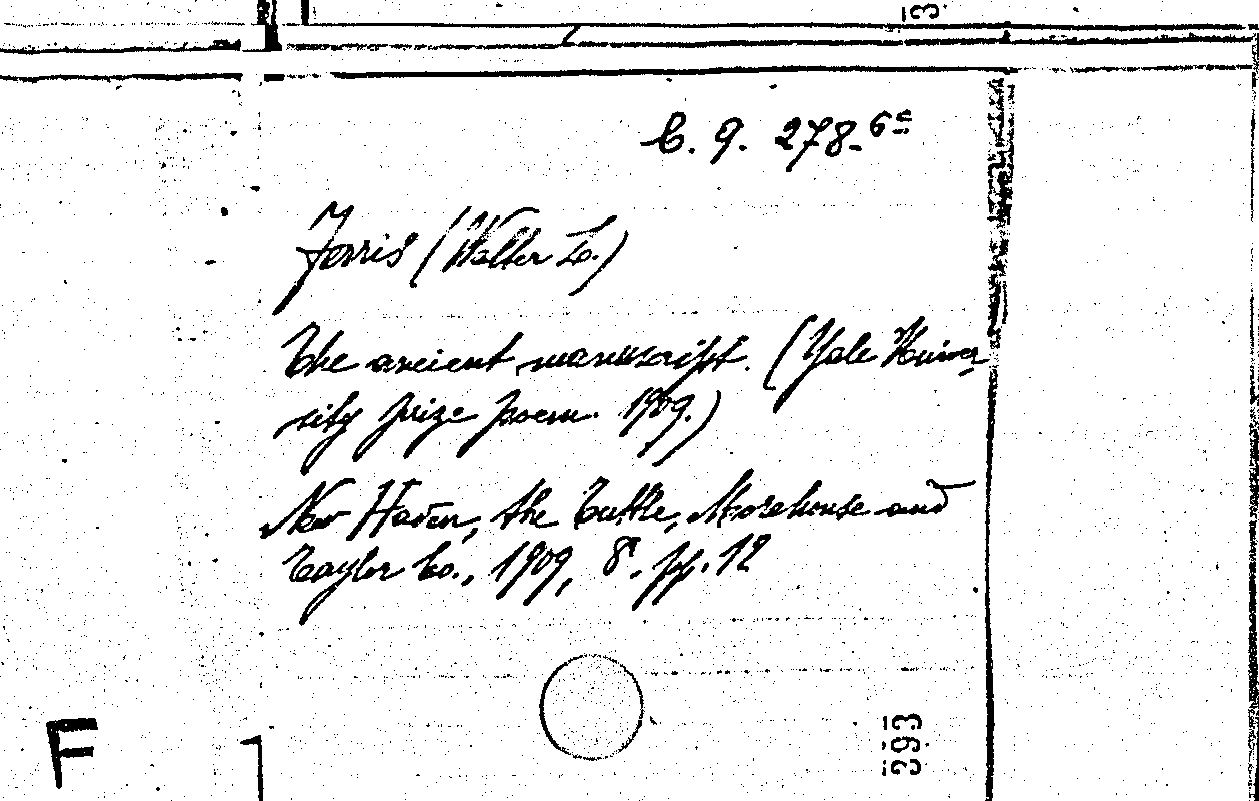 C. 9. 278-6
Ferris (Walter L.)
The ancient manuscript. (Yale Univer
sity prize poem. 1909.)
New Haven, the Tuttle, Morehouse and
Taylor Co., 1909, 8°. pp. 12
F
393